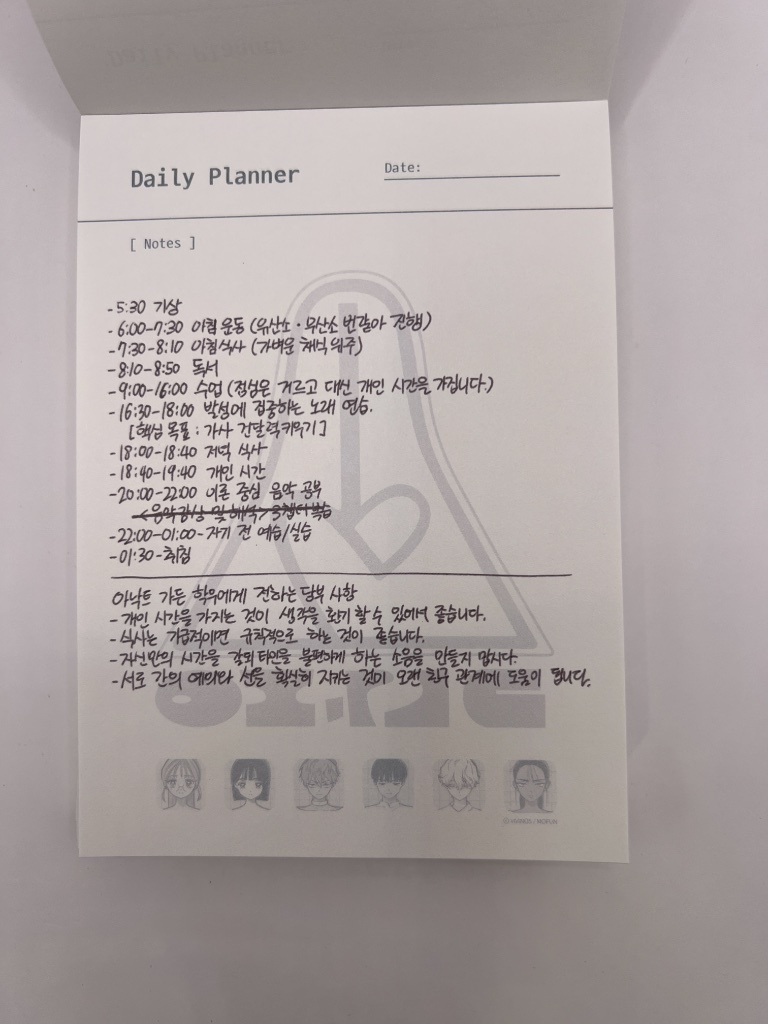 Daily Planner
Date:
[ Notes ]
-5:30 기상
-6:00-7:30 아침 운동 (유산소·무산소 번갈아 진행)
-7:30-8:10 아침식사 (가벼운 채식 위주)
-8:10-8:50 독서
-9:00-16:00 수업 (점심은 거르고 대신 개인 시간을 가집니다.)
-16:30-18:00 발성에 집중하는 노래 연습.
[핵심 목표 : 가사 전달력 키우기]
-18:00-18:40 저녁 식사
-18:40-19:40 개인 시간
-20:00-22:00 이론 중심 음악 공부
<음악감상 및 해석> 3챕터 복습
-22:00-01:00-자기 전 예습/실습
-01:30-취침
아낙트 가든 학우에게 전하는 당부 사항
-개인 시간을 가지는 것이 생각을 환기 할 수 있어서 좋습니다.
-식사는 가급적이면 규칙적으로 하는 것이 좋습니다.
-자신만의 시간을 갖되 타인을 불편하게 하는 소음을 만들지 맙시다.
-서로 간의 예의와 선을 확실히 지키는 것이 오랜 친구 관계에 도움이 됩니다.